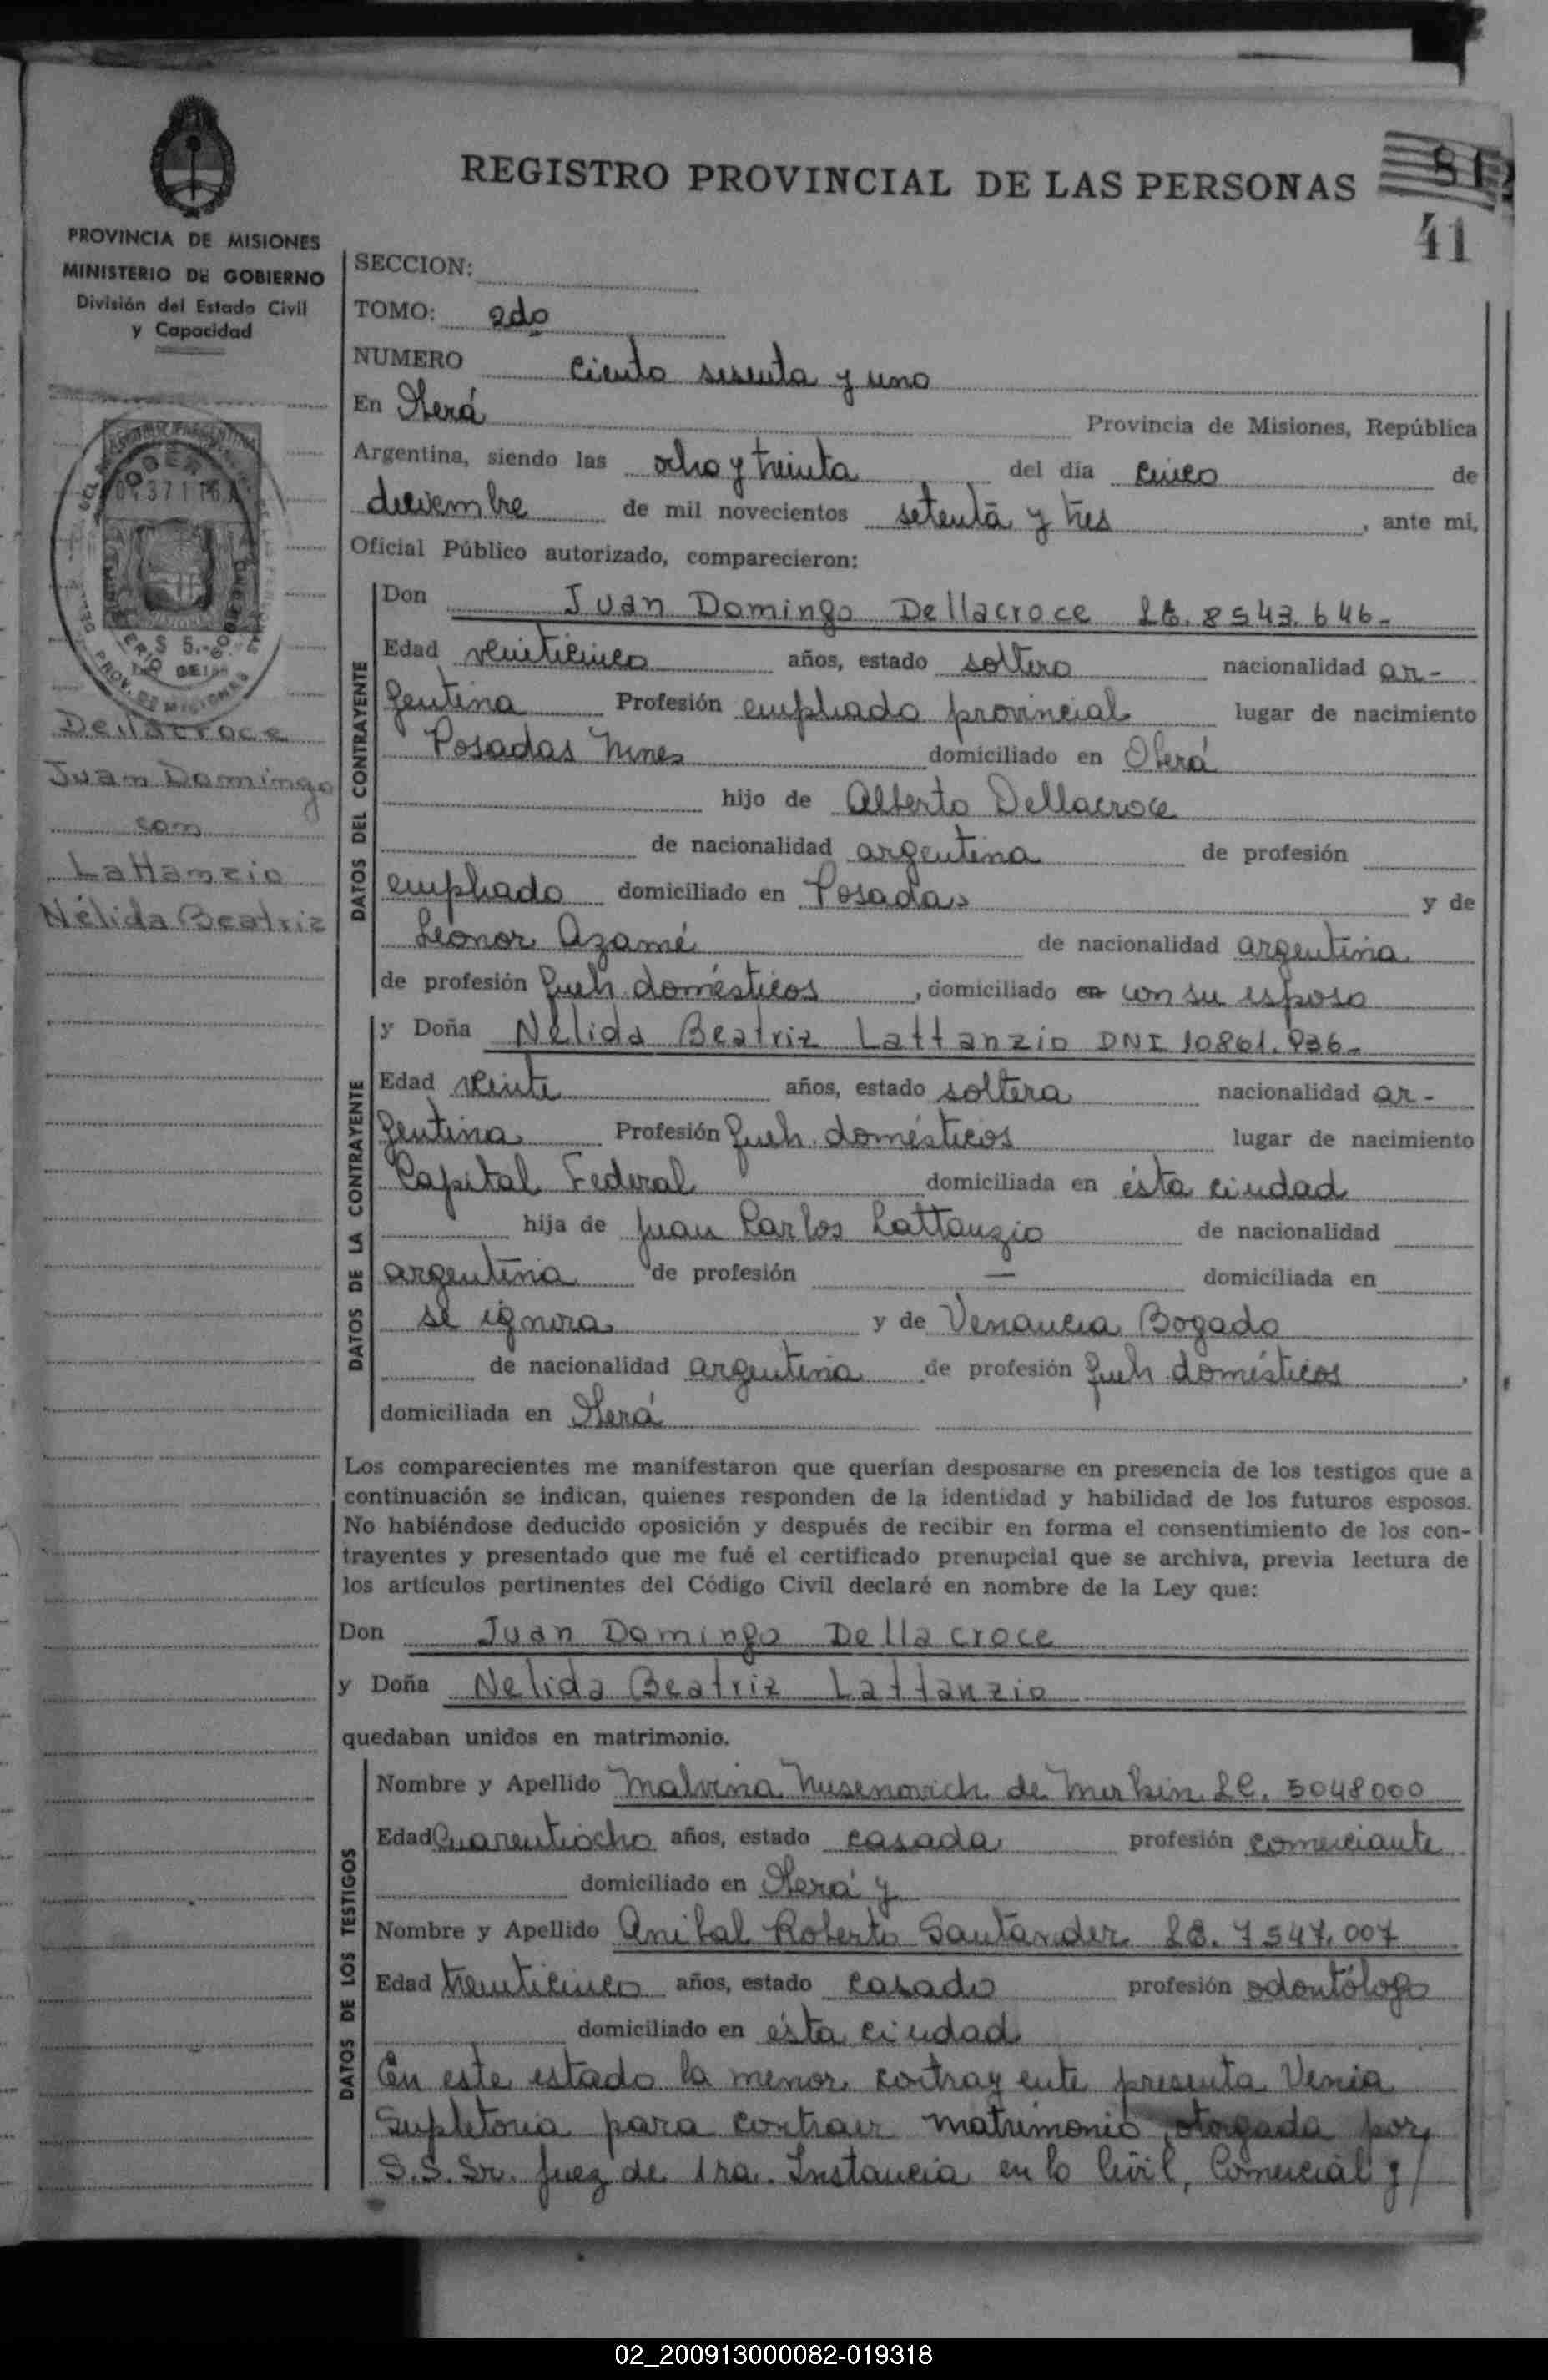 REGISTRO PROVINCIAL DE LAS PERSONAS
81
41
PROVINCIA DE MISIONES
MINISTERIO DE GOBIERNO
División del Estado Civil
y Capacidad
SECCION:
TOMO: 2do
NUMERO ciento sesenta y uno
En Oberá Provincia de Misiones, República
Argentina, siendo las ocho y treinta del día cinco de
diciembre de mil novecientos setenta y tres, ante mi,
Oficial Público autorizado, comparecieron:
$ 5.-
Dellacroce
Juan Domingo
con
Lattanzio
Nélida Beatriz
DATOS DEL CONTRAYENTE
Don Juan Domingo Dellacroce LE. 8543.646.-
Edad veinticinco años, estado soltero nacionalidad ar-
gentina Profesión empleado provincial lugar de nacimiento
Posadas Mnes domiciliado en Oberá
hijo de Alberto Dellacroce
de nacionalidad argentina de profesión
empleado domiciliado en Posadas y de
Leonor Azamé de nacionalidad argentina
de profesión queh. domésticos, domiciliado en con su esposo
DATOS DE LA CONTRAYENTE
y Doña Nélida Beatriz Lattanzio DNI 10861.936.-
Edad veinte años, estado soltera nacionalidad ar-
gentina Profesión queh. domésticos lugar de nacimiento
Capital Federal domiciliada en ésta ciudad
hija de Juan Carlos Lattanzio de nacionalidad
argentina de profesión — domiciliada en
se ignora y de Venancia Bogado
de nacionalidad argentina de profesión queh. domésticos,
domiciliada en Oberá
Los comparecientes me manifestaron que querían desposarse en presencia de los testigos que a
continuación se indican, quienes responden de la identidad y habilidad de los futuros esposos.
No habiéndose deducido oposición y después de recibir en forma el consentimiento de los con-
trayentes y presentado que me fué el certificado prenupcial que se archiva, previa lectura de
los artículos pertinentes del Código Civil declaré en nombre de la Ley que:
Don Juan Domingo Dellacroce
y Doña Nelida Beatriz Lattanzio
quedaban unidos en matrimonio.
DATOS DE LOS TESTIGOS
Nombre y Apellido Malvina Nusenovich de Mirkin LC. 5048000
Edad Cuarentiocho años, estado casada profesión comerciante
domiciliado en Oberá y
Nombre y Apellido Anibal Roberto Santander LE. 7547.007
Edad treinticinco años, estado casado profesión odontólogo
domiciliado en ésta ciudad
En este estado la menor contrayente presenta Venia
Supletoria para contraer matrimonio otorgada por
S.S. Sr. Juez de 1ra. Instancia en lo Civil, Comercial y/
02_200913000082-019318